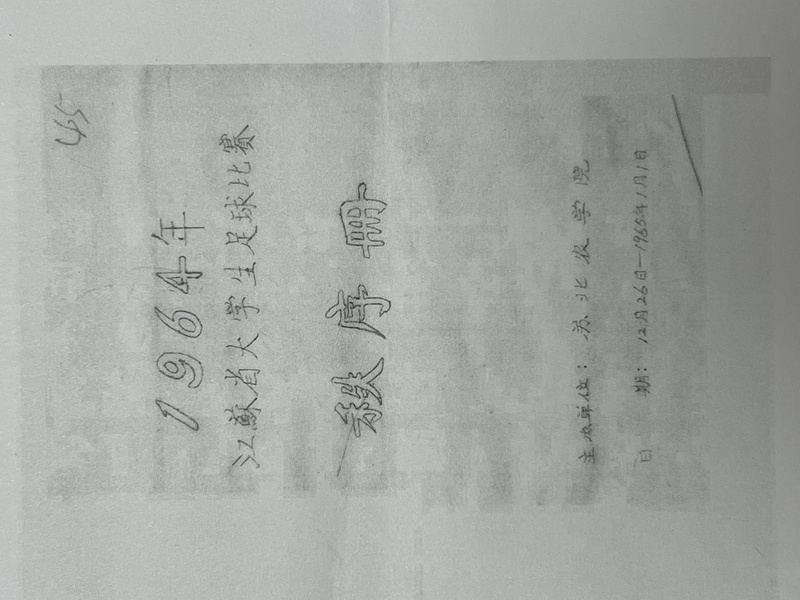 1964年
江蘇省大学生足球比赛
秩序冊
主办单位：苏北农学院
日期：12月26日—1965年1月1日